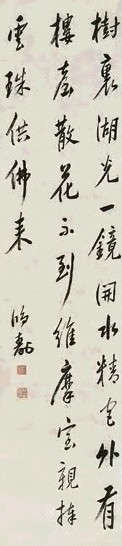 樹裏湖光一鏡開水精宮外有
樓臺散花不到維摩室親捧
雲珠供佛來